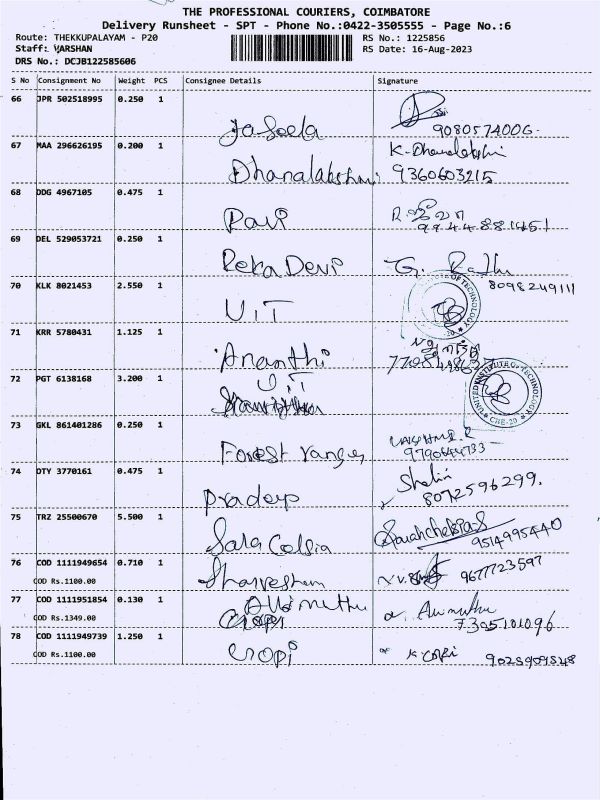 THE PROFESSIONAL COURIERS, COIMBATORE
Delivery Runsheet - SPT - Phone No.:0422-3505555 - Page No.:6
Route: THEKKUPALAYAM - P20
RS No.: 1225856
Staff: VARSHAN
RS Date: 16-Aug-2023
DRS No.: DCJB122585606
S No Consignment No Weight PCS Consignee Details Signature
66 JPR 502518995 0.250 1
Jaseela
9080574006.
67 MAA 296626195 0.200 1
K. Dhanalakshmi
Dhanalakshmi 9360603215
68 DDG 4967105 0.475 1
Pavi
9944881451
69 DEL 529053721 0.250 1
Reka Devi G.
70 KLK 8021453 2.550 1
8098249111
UIT
OF TECHNOLOGY
71 KRR 5780431 1.125 1
Ananthi
72 PGT 6138168 3.200 1
UIT
UNITED INSTITUTE OF TECHNOLOGY
CBE-20
73 GKL 861401286 0.250 1
Forest ranges
9790644733
74 DTY 3770161 0.475 1
Shalini
Pradeep 8072596299.
75 TRZ 25500670 5.500 1
Sara Celsia 9514995440
76 COD 1111949654 0.710 1
COD Rs.1100.00
Sharvesham 9677723597
77 COD 1111951854 0.130 1
COD Rs.1349.00
7305101096
78 COD 1111949739 1.250 1
COD Rs.1100.00
Gopi K. Gopi